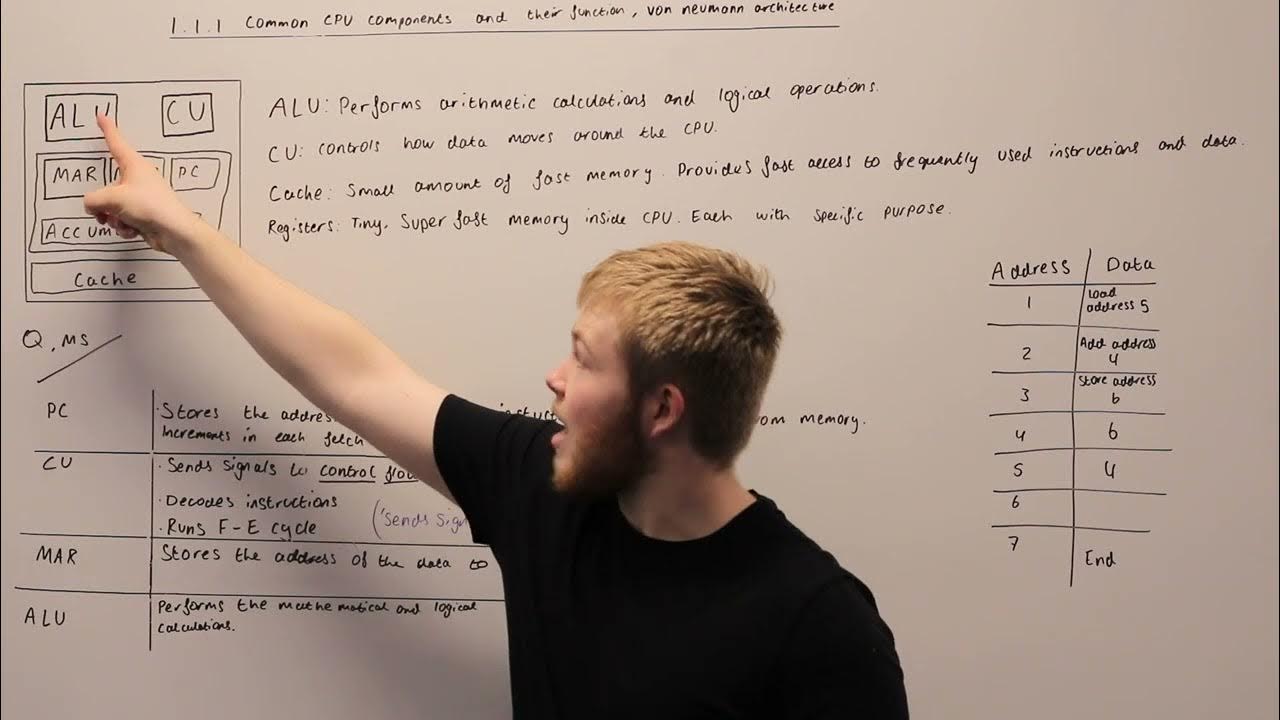 1.1.1 Common CPU components and their function, von neumann architecture
ALU CU
MAR PC
Cache
ALU: Performs arithmetic calculations and logical operations.
CU: controls how data moves around the CPU.
Cache: Small amount of fast memory. Provides fast access to frequently used instructions and data.
Registers: Tiny, Super fast memory inside CPU. Each with specific purpose.
Q, MS
PC
·Stores the memory.
Increments in each fetch
CU
·Sends signals to control
·Decodes instructions
·Runs F-E cycle ('Sends
MAR
Stores the address of the data to
ALU
Performs the mathematical and logical
calculations.
Address Data
1 Load
address 5
2 Add address
4
3 Store address
6
4 6
5 4
6
7 End